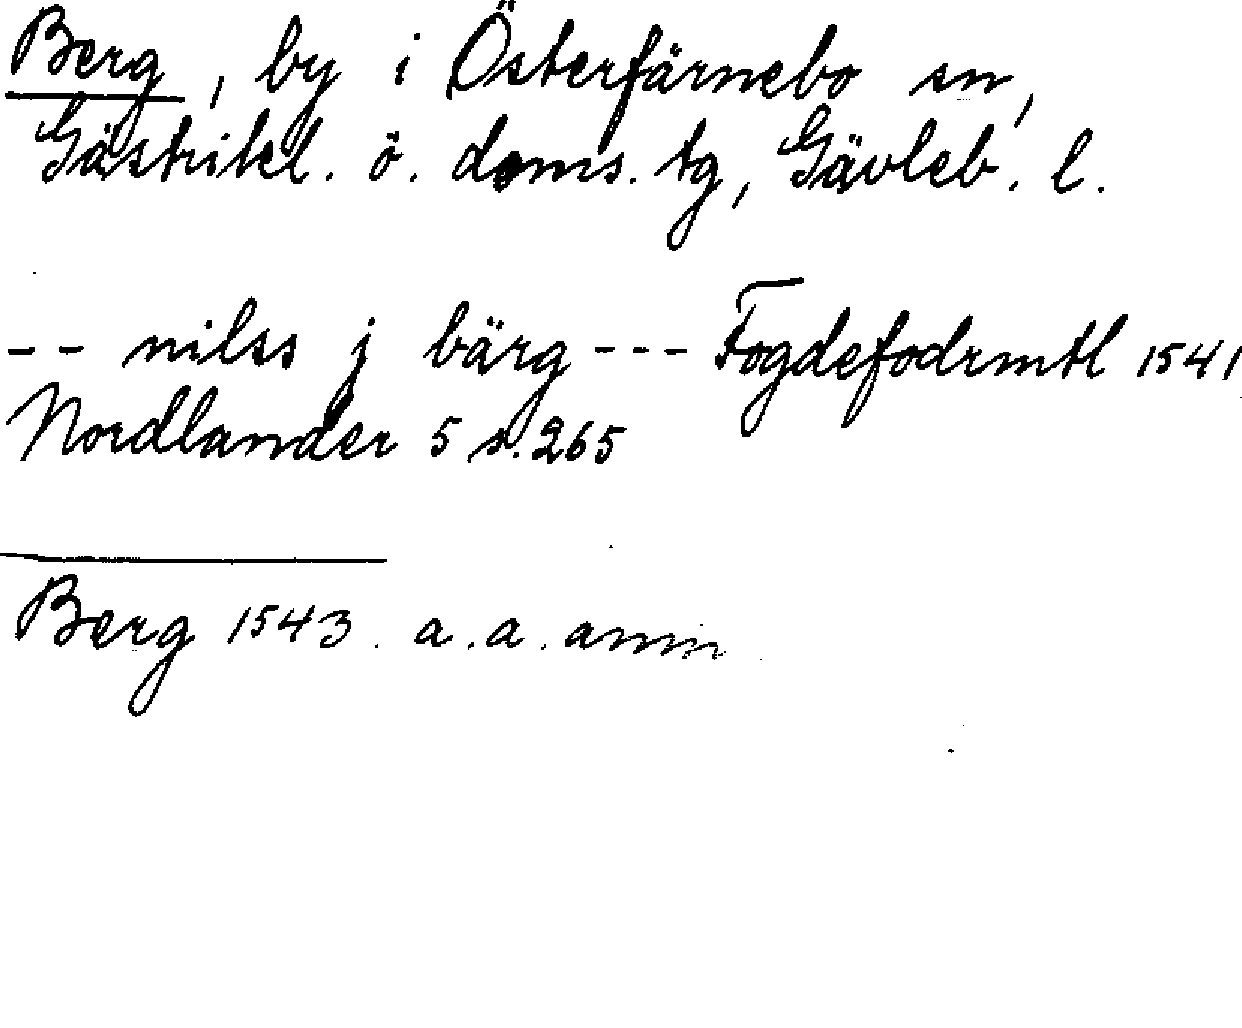 Berg, by i Österfärnebo sn,
Gästrikl. ö. doms. tg, Gävleb. l.
-- nilss j bärg --- Fogdefodrmtl 1541
Nordlander 5 s. 265
Berg 1543. a. a. anm